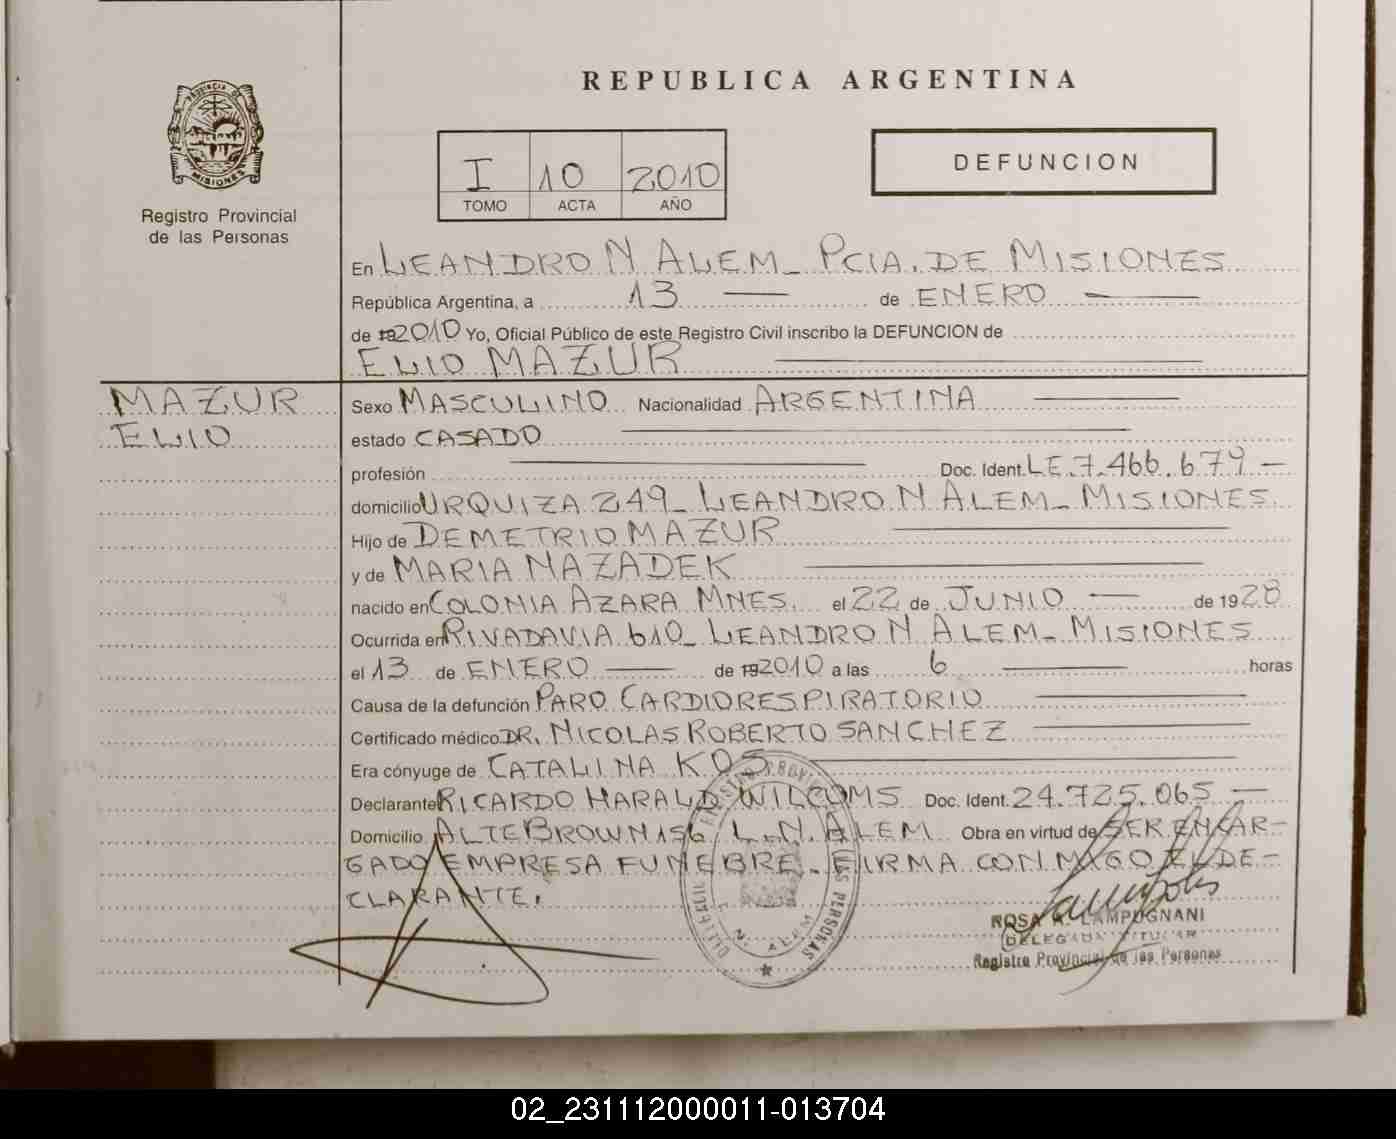 REPUBLICA ARGENTINA
PROVINCIA DE
MISIONES
Registro Provincial
de las Personas
I 10 2010
TOMO ACTA AÑO
DEFUNCION
En LEANDRO N ALEM_ PCIA. DE MISIONES
República Argentina, a 13 — de ENERO —
de 192010 Yo, Oficial Público de este Registro Civil inscribo la DEFUNCION de
ELIO MAZUR
MAZUR
ELIO
Sexo MASCULINO Nacionalidad ARGENTINA
estado CASADO
profesión — Doc. Ident. LE.7.466.679 —
domicilio URQUIZA 249_ LEANDRO N ALEM_ MISIONES
Hijo de DEMETRIO MAZUR
y de MARIA NAZADEK
nacido en COLONIA AZARA MNES. el 22 de JUNIO — de 1928
Ocurrida en RIVADAVIA 610_ LEANDRO N ALEM_ MISIONES
el 13 de ENERO — de 192010 a las 6 — horas
Causa de la defunción PARO CARDIORESPIRATORIO
Certificado médico DR. NICOLAS ROBERTO SANCHEZ
Era cónyuge de CATALINA KOS
Declarante RICARDO HARALD WILCOMS Doc. Ident. 24.725.065 —
Domicilio ALTE BROWN 156 L.N. ALEM Obra en virtud de SER ENCAR-
GADO EMPRESA FUNEBRE. FIRMA CONMIGO EL DE-
CLARANTE.
REGISTRO PROVINCIAL DE LAS PERSONAS
L. N. ALEM
ROSA A. LAMPUGNANI
DELEGADA TITULAR
Registro Provincial de las Personas
02_231112000011-013704